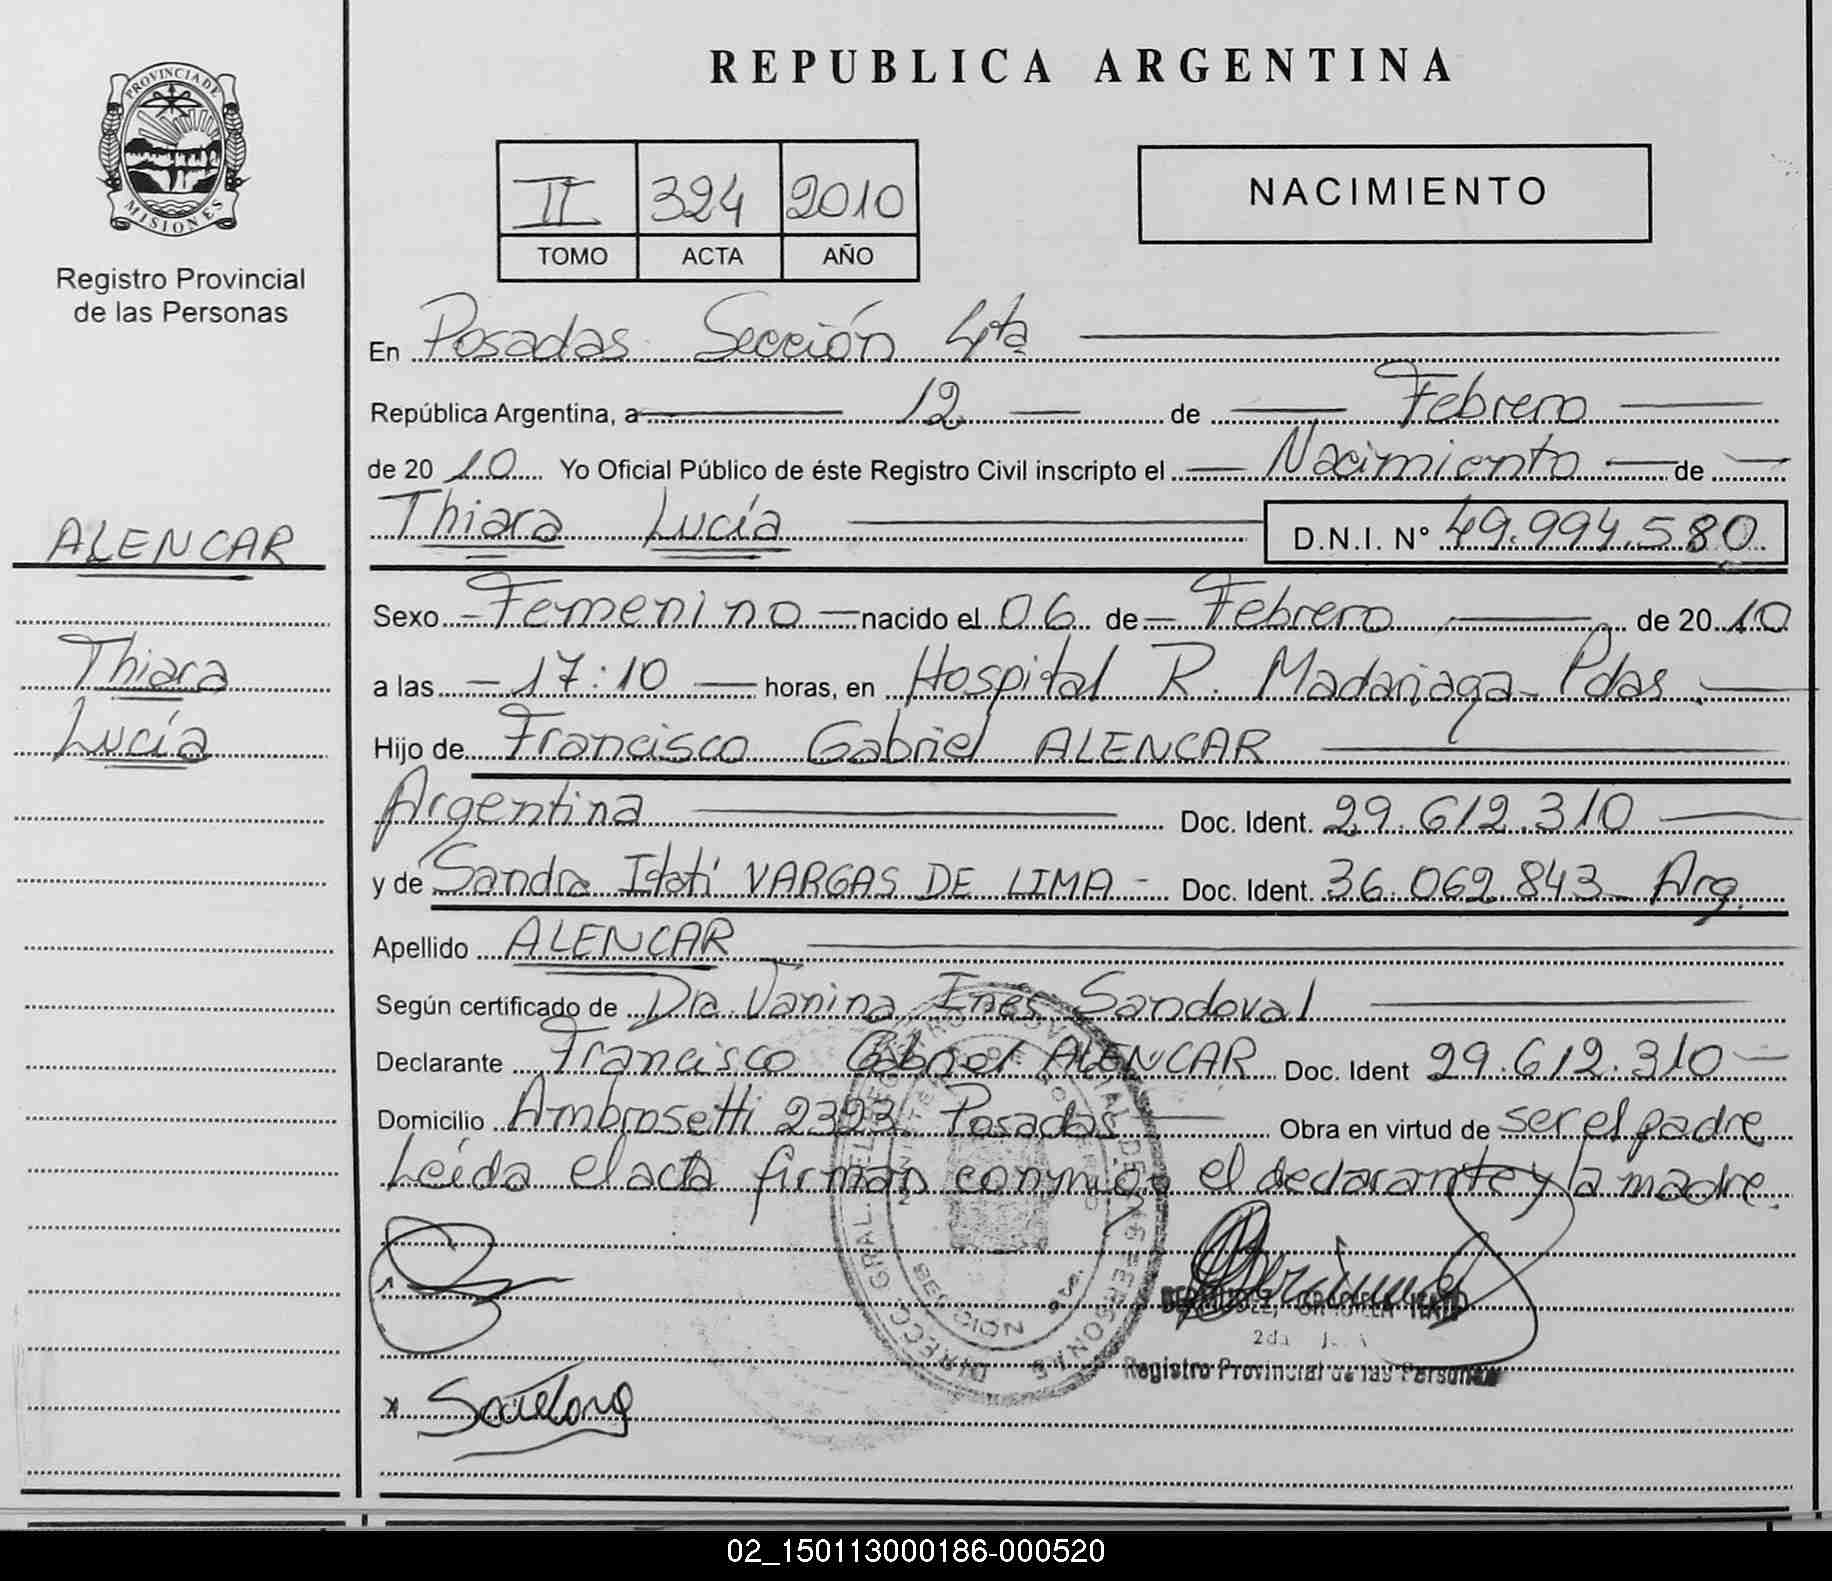 PROVINCIA DE
MISIONES
Registro Provincial
de las Personas
ALENCAR
Thiara
Lucía
REPUBLICA ARGENTINA
II 324 2010
TOMO ACTA AÑO
NACIMIENTO
En Posadas Sección 4ta
República Argentina, a 12 de Febrero
de 2010 Yo Oficial Público de éste Registro Civil inscripto el Nacimiento de
Thiara Lucía D.N.I. N° 49.994.580
Sexo Femenino nacido el 06 de Febrero de 2010
a las 17:10 horas, en Hospital R. Madariaga Pdas.
Hijo de Francisco Gabriel ALENCAR
Argentina Doc. Ident. 29.612.310
y de Sandra Itatí VARGAS DE LIMA - Doc. Ident. 36.062.843 Arg.
Apellido ALENCAR
Según certificado de Dra. Vanina Inés Sandoval
Declarante Francisco Gabriel ALENCAR Doc. Ident 29.612.310
Domicilio Ambrosetti 2323 Posadas Obra en virtud de ser el padre
Leída el acta firman conmigo el declarante y la madre.
DIRECC. GRAL. DE PERSONAS
SECCION
Registro Provincial de las Personas
02_150113000186-000520